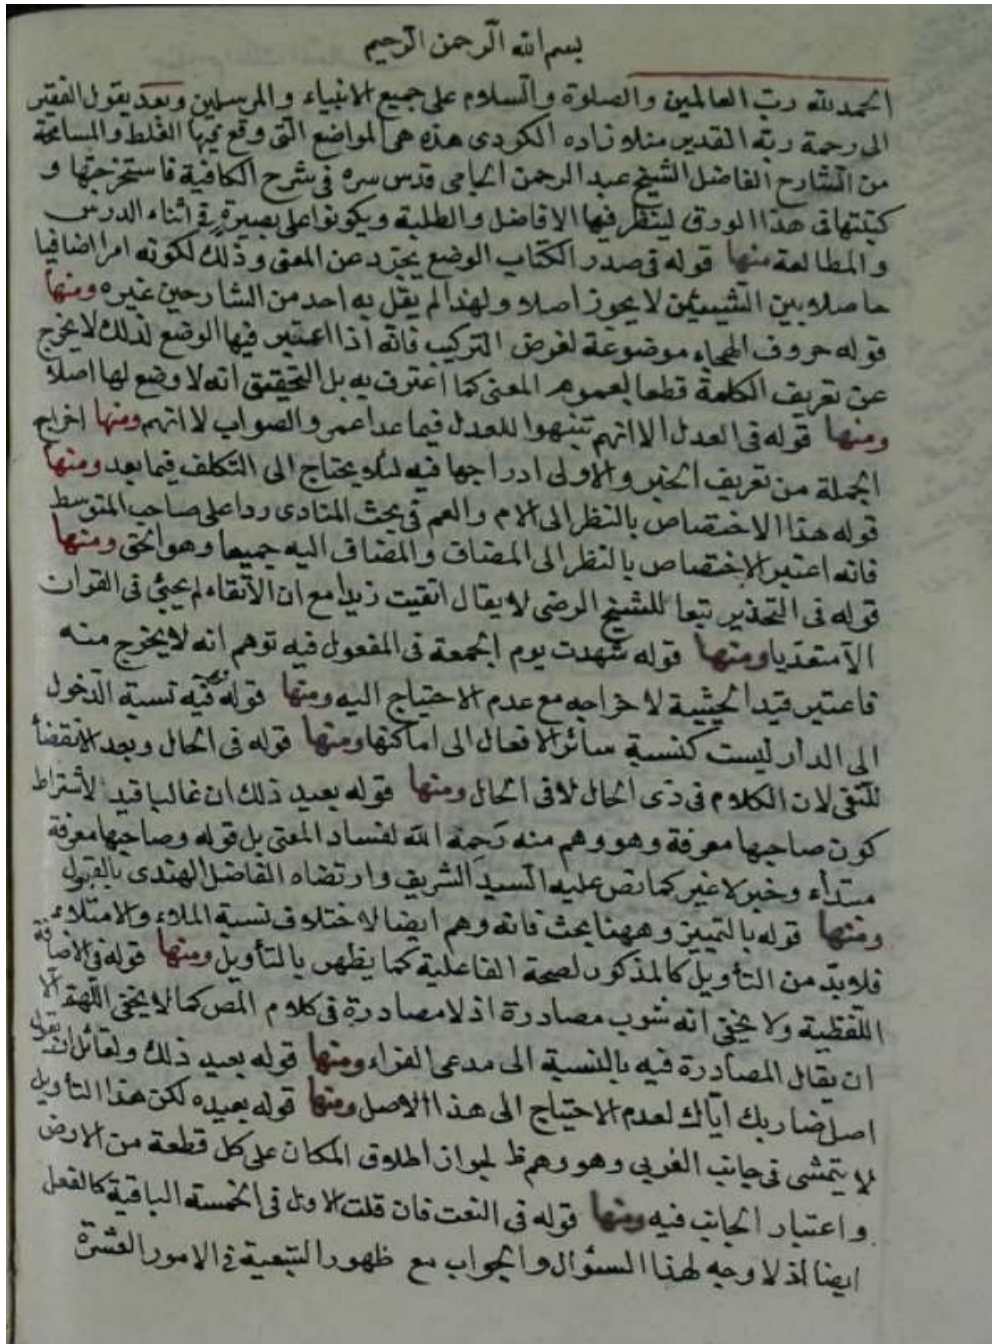 بسم الله الرحمن الرحيم
الحمد لله رب العالمين والصلوة والسلام على جميع الانبياء والمرسلين وبعد يقول الفقير
الى رحمة ربه القدير منلا زاده الكردى هذه هى المواضع التى وقع فيها الغلط والمسامحة
من الشارح الفاضل الشيخ عبد الرحمن الجامى قدس سره فى شرح الكافية فاستخرجتها و
كتبتها فى هذا الورق لينظر فيها الافاضل والطلبة ويكونوا على بصيرة فى اثناء الدرس
والمطالعة منها قوله فى صدر الكتاب الوضع يجرد عن المعنى وذلك لكونه امرا اضافيا
حاصلا بين الشيئين لا يجوز اصلا ولهذا لم يقل به احد من الشارحين غيره ومنها
قوله حروف الهجاء موضوعة لغرض التركيب فانه اذا اعتبر فيها الوضع لذلك لا يخرج
عن تعريف الكلمة قطعا لعموم المعنى كما اعترف به بل التحقيق انه لا وضع لها اصلا
ومنها قوله فى العدل الا انهم تنبهوا للعدل فيما عدا عمر والصواب لا انهم ومنها اخراج
الجملة من تعريف الخبر والاولى ادراجها فيه لئلا يحتاج الى التكلف فيما بعد ومنها
قوله هذا الاختصاص بالنظر الى الام والعم فى بحث المنادى ردا على صاحب المتوسط
فانه اعتبر الاختصاص بالنظر الى المضاف والمضاف اليه جميعا وهو الحق ومنها
قوله فى التحذير تبعا للشيخ الرضى لا يقال اتقيت زيدا مع ان الاتقاء لم يجئ فى القران
الا متعديا ومنها قوله شهدت يوم الجمعة فى المفعول فيه توهم انه لا يخرج منه
فاعتبر قيد الحيثية لاخراجه مع عدم الاحتياج اليه ومنها قوله فيه نسبة الدخول
الى الدار ليست كنسبة سائر الافعال الى اماكنها ومنها قوله فى الحال وبعد الانقضأ
للنفى لان الكلام فى ذى الحال لا فى الحال ومنها قوله بعيد ذلك ان غالبا قيد لاشتراط
كون صاحبها معرفة وهو وهم منه رحمه الله لفساد المعنى بل قوله وصاحبها معرفة
مبتدأ وخبر لا غير كما نص عليه السيد الشريف وارتضاه الفاضل الهندى بالقبول
ومنها قوله بالتمييز وههنا بحث فانه وهم ايضا لاختلاف نسبة الملاء والامتلاء
فلا بد من التأويل كالمذكور لصحة الفاعلية كما يظهر بالتأويل ومنها قوله فى الاضافة
اللفظية ولا يخفى انه شوب مصادرة اذ لا مصادرة فى كلام المص كما لا يخفى اللهم الا
ان يقال المصادرة فيه بالنسبة الى مدعى الفراء ومنها قوله بعيد ذلك ولقائل ان يقول
اصل ضاربك اياك لعدم الاحتياج الى هذا الاصل ومنها قوله بعيده لكن هذا التأويل
لا يتمشى فى جانب الغربى وهو وهم ظ لجواز اطلاق المكان على كل قطعة من الارض
واعتبار الجانب فيه ومنها قوله فى النعت فان قلت الاول فى الخمسة الباقية كالفعل
ايضا اذ لا وجه لهذا السؤال والجواب مع ظهور التبعية فى الامور العشرة